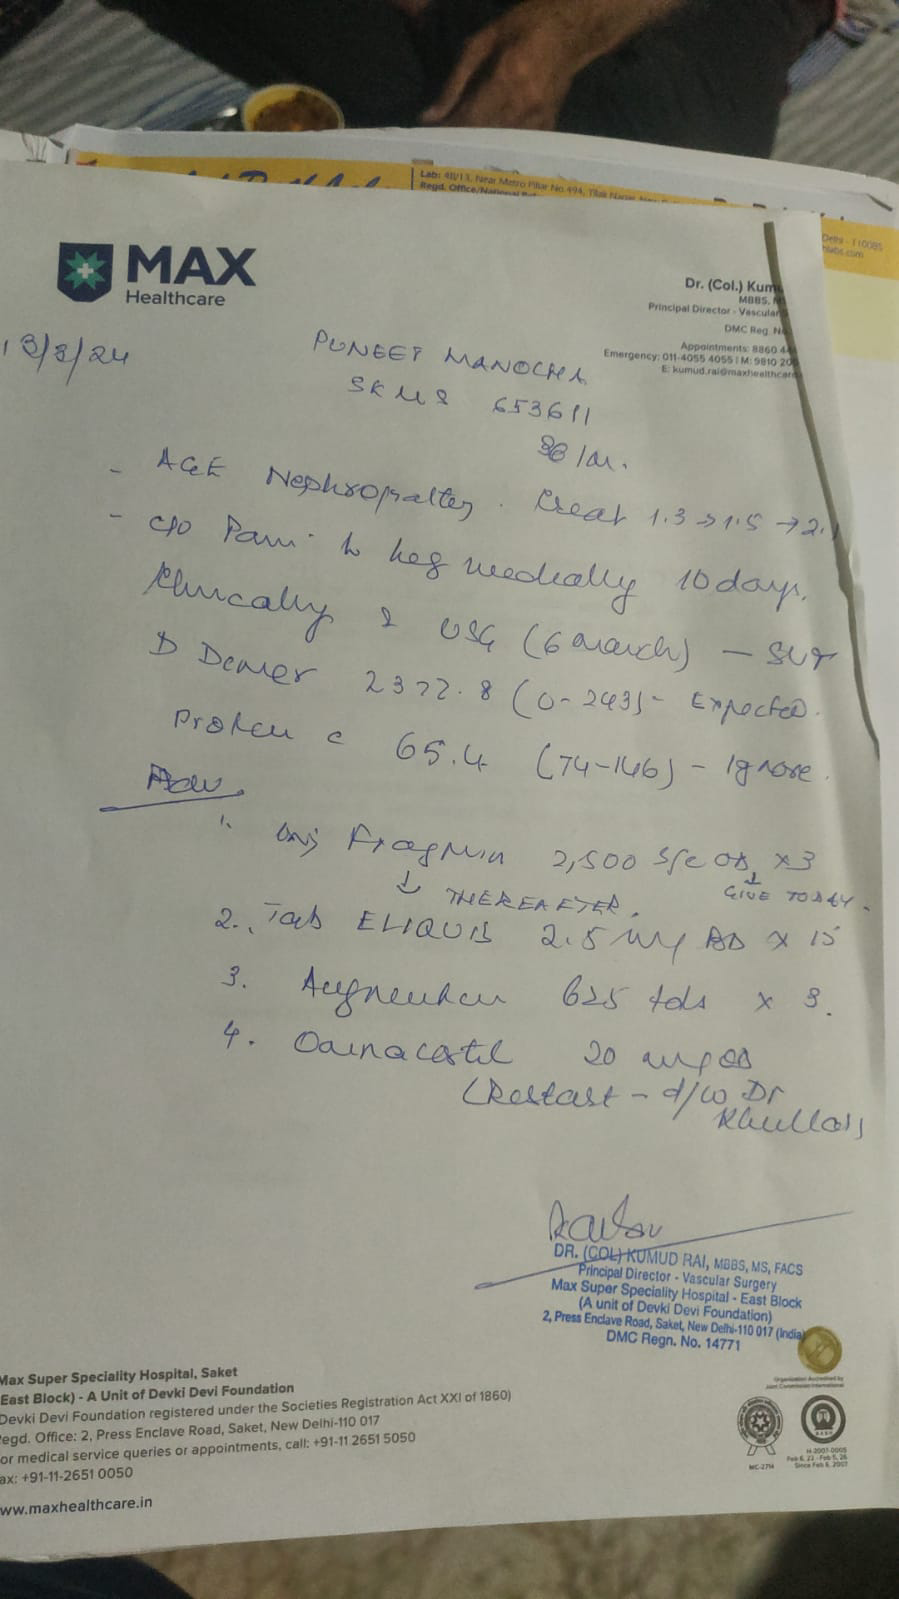 Lab: 4B/13, Near Metro Pillar No 494, Tilak Nagar, New
Regd. Office/National
Delhi - 110085
hlabs.com
MAX
Healthcare
Dr. (Col.) Kum
MBBS, M
Principal Director - Vascular
DMC Reg. No
Appointments: 8860 44
Emergency: 011-4055 4055 | M: 9810 20
E: kumud.rai@maxhealthcare
13/3/24
PUNEET MANOCHA
SKMS 653611
38/M.
- Nephropathy. Creat 1.3 → 1.5 → 2.1
- c/o Pain L leg medially 10 days.
Clinically & USG (6 March) - SVT
D Dimer 2322.8 (0-243) - Expected.
Protein C 65.4 (74-146) - Ignore.
Adv
1. Inj Fragmin 2,500 s/c OD x3
↓ GIVE TODAY.
↓ THEREAFTER.
2. Tab ELIQUIS 2.5 mg BD x 15
3. Augmentin 625 tds x 3.
4. 20 mg OD
(Restart - d/w Dr
Khullar)
DR. (COL) KUMUD RAI, MBBS, MS, FACS
Principal Director - Vascular Surgery
Max Super Speciality Hospital - East Block
(A unit of Devki Devi Foundation)
2, Press Enclave Road, Saket, New Delhi-110 017 (India)
DMC Regn. No. 14771
Max Super Speciality Hospital, Saket
East Block) - A Unit of Devki Devi Foundation
Devki Devi Foundation registered under the Societies Registration Act XXI of 1860)
egd. Office: 2, Press Enclave Road, Saket, New Delhi-110 017
or medical service queries or appointments, call: +91-11 2651 5050
ax: +91-11-2651 0050
ww.maxhealthcare.in
Organization Accredited by
Joint Commission International
MC-2714
H-2007-0005
Feb 6, 22 - Feb 5, 26
Since Feb 6, 2007